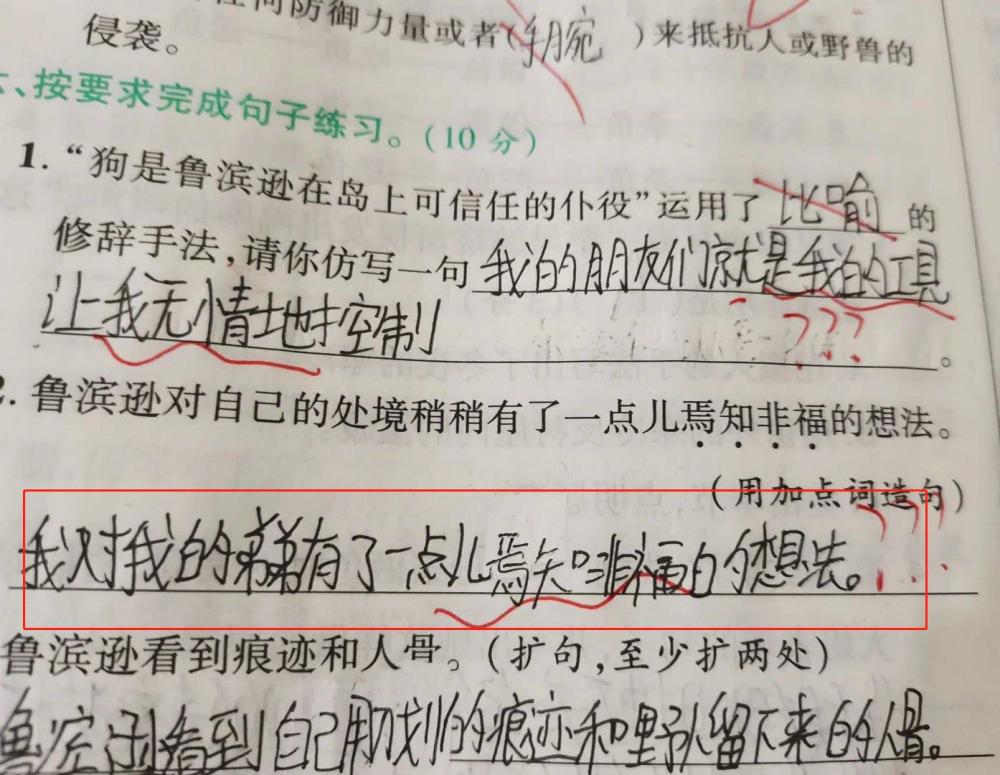 任何防御力量或者(手腕)来抵抗人或野兽的
侵袭。
六、按要求完成句子练习。(10 分)
1.“狗是鲁滨逊在岛上可信任的仆役”运用了 比喻 的
修辞手法,请你仿写一句 我的朋友们就是我的工具
让我无情地控制 ???。
2. 鲁滨逊对自己的处境稍稍有了一点儿焉知非福的想法。
(用加点词造句)
我对我的弟弟有了一点儿焉知非福的想法。???
鲁滨逊看到痕迹和人骨。(扩句,至少扩两处)
看到自己用刀划的痕迹和野人留下来的人骨。